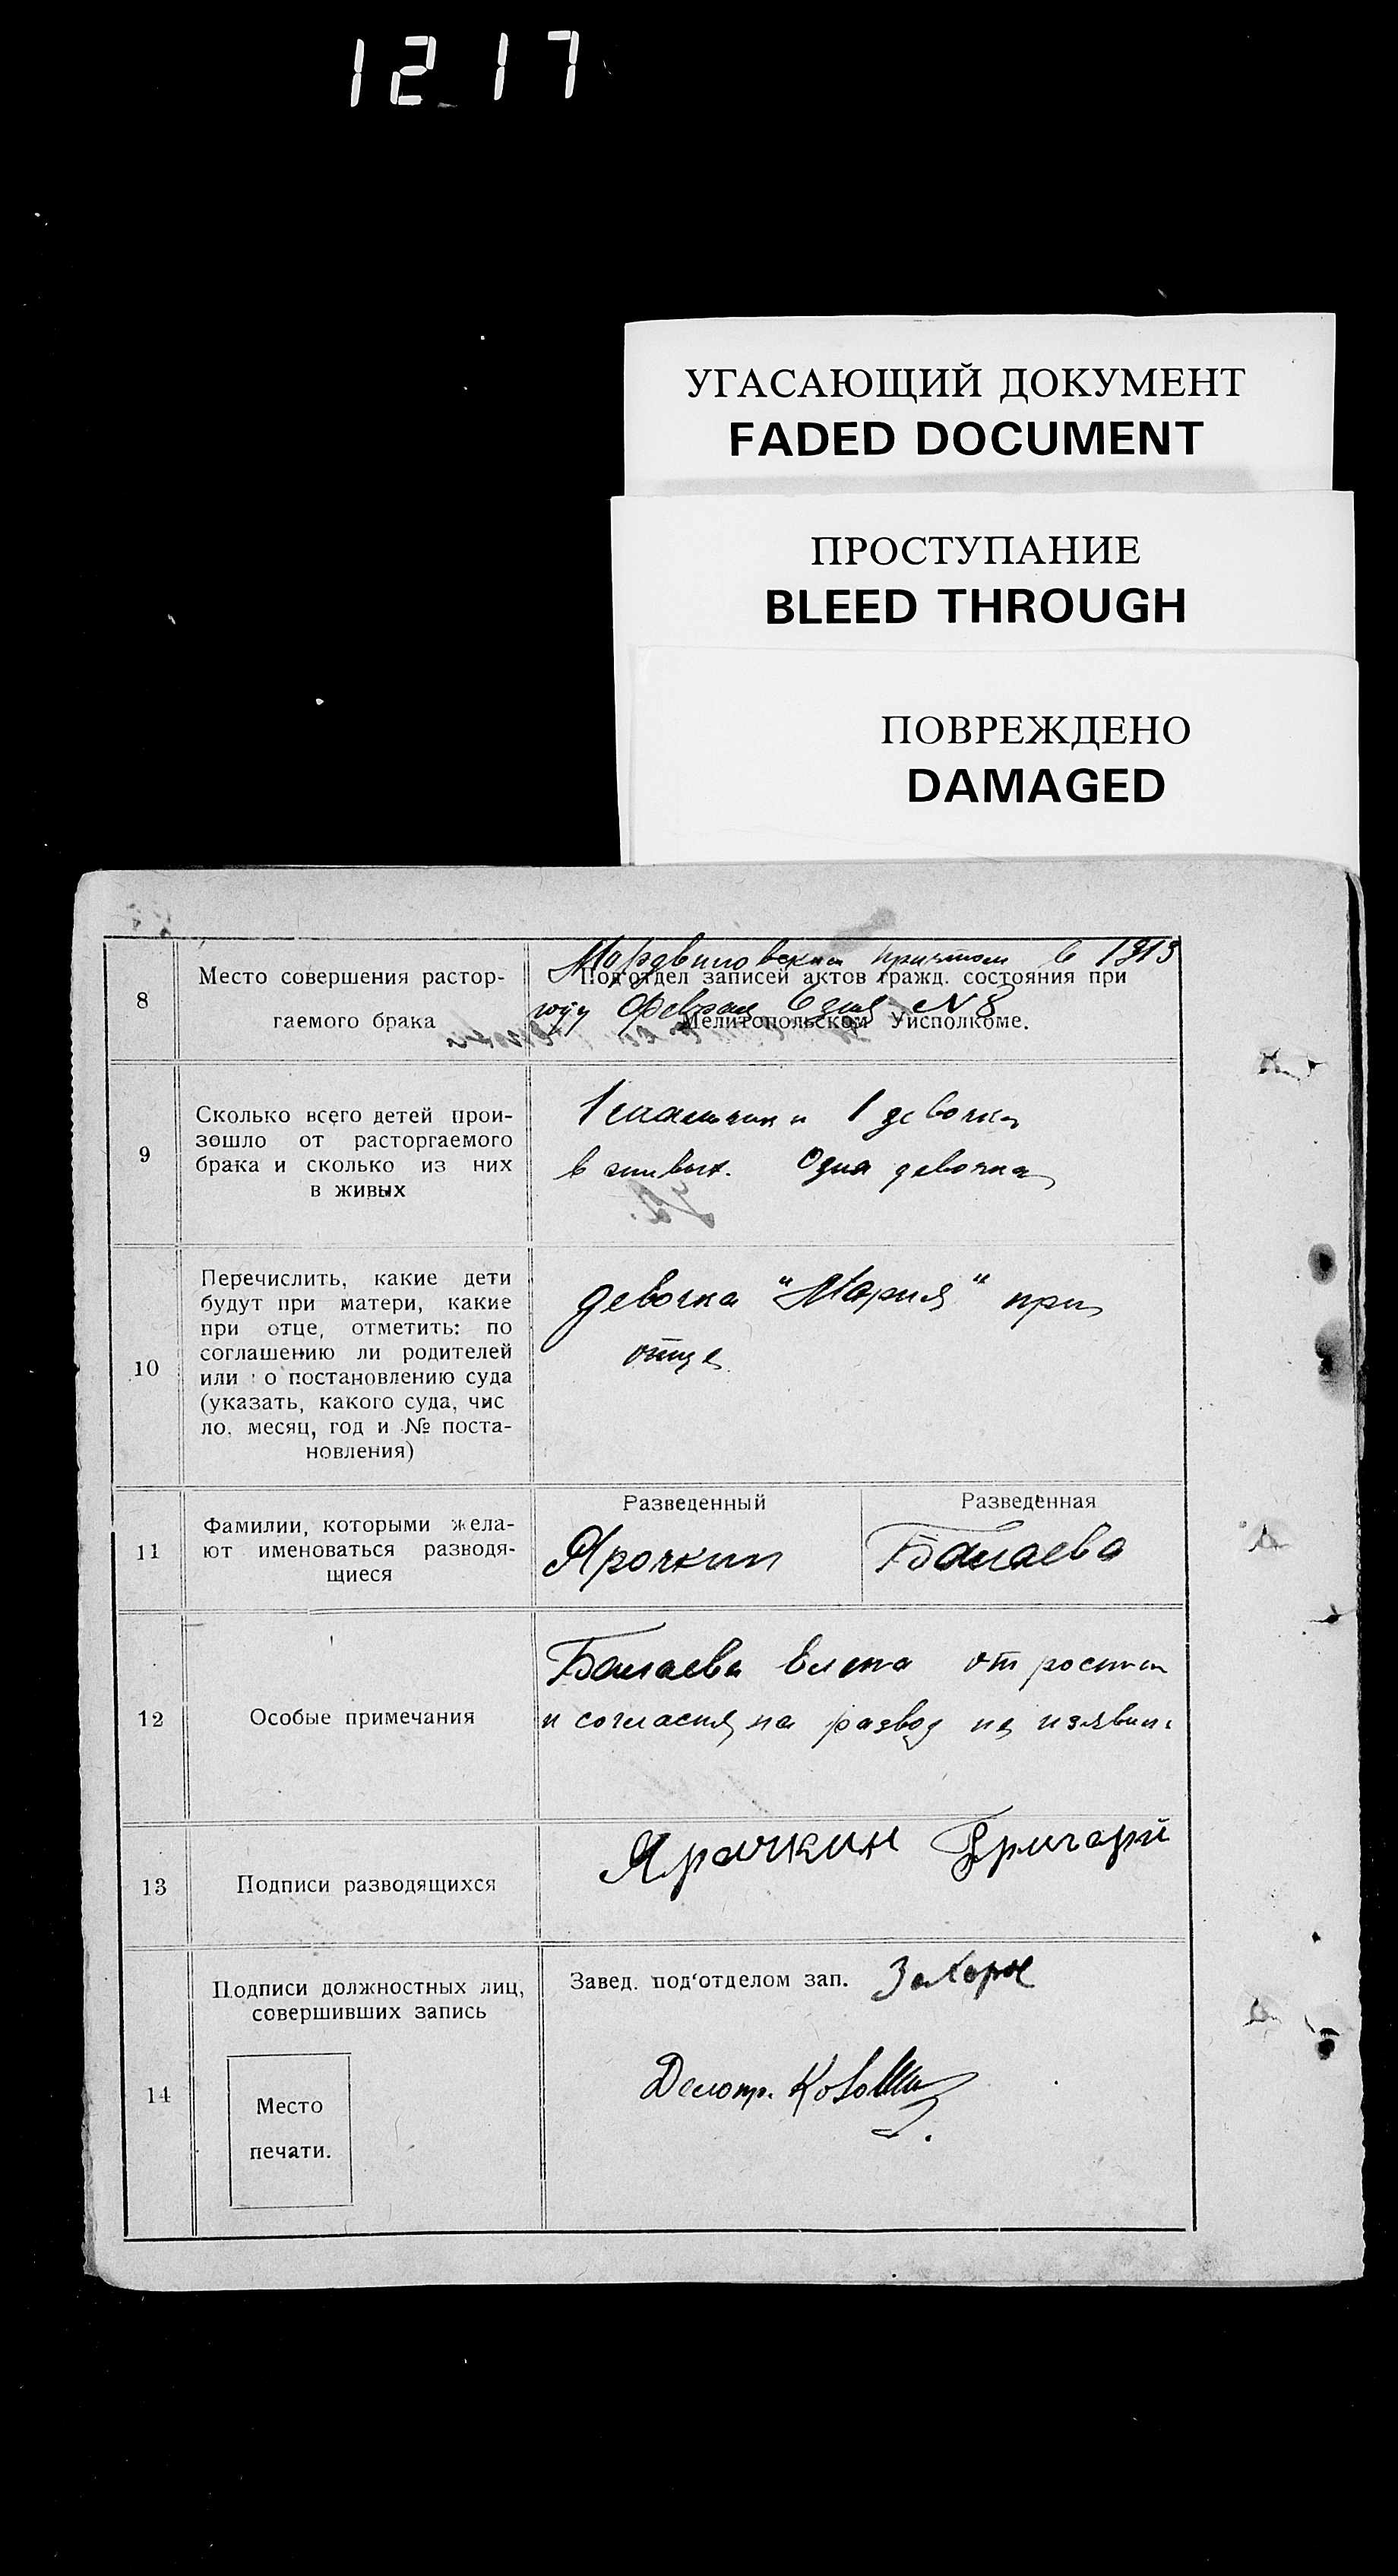 1217
УГАСАЮЩИЙ ДОКУМЕНТ
FADED DOCUMENT
ПРОСТУПАНИЕ
BLEED THROUGH
ПОВРЕЖДЕНО
DAMAGED
8
Место совершения растор-
гаемого брака
Мордвиновским причтом в 1913
Под'отдел записей актов гражд. состояния при
году Февраля 6 дня N 8
Мелитопольском Уисполкоме.
9
Сколько всего детей прои-
зошло от расторгаемого
брака и сколько из них
в живых
1 мальчик и 1 девочка
в живых. Одна девочка
10
Перечислить, какие дети
будут при матери, какие
при отце, отметить: по
соглашению ли родителей
или о постановлению суда
(указать, какого суда, чис
ло, месяц, год и № поста-
новления)
девочка "Мария" при
отце
11
Фамилии, которыми жела-
ют именоваться разводя-
щиеся
Разведенный
Ярочкин
Разведенная
Балаева
12
Особые примечания
Балаева Елена от росписи
и согласия на развод не из'явил
13
Подписи разводящихся
Ярачкин Григорий
14
Подписи должностных лиц,
совершивших запись
Место
печати.
Завед. под'отделом зап.
Делопр.